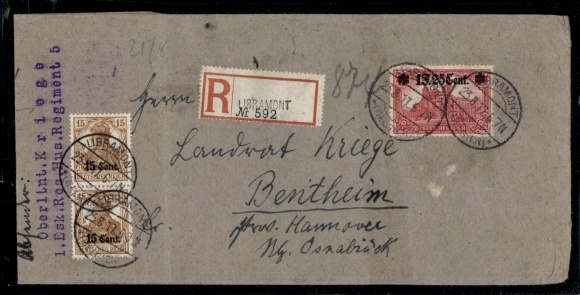 Absender:
Oberltnt. Kriege
1. Esk. Res. Hus. Regiment 5
R
LIBRAMONT
№ 592
1F.25Cent.
LIBRAMONT
15 15
15 Cent.
LIBRAMONT
15 Cent.
LIBRAMONT
Herrn
Landrat Kriege
Bentheim
Prov. Hannover
Bz. Osnabrück